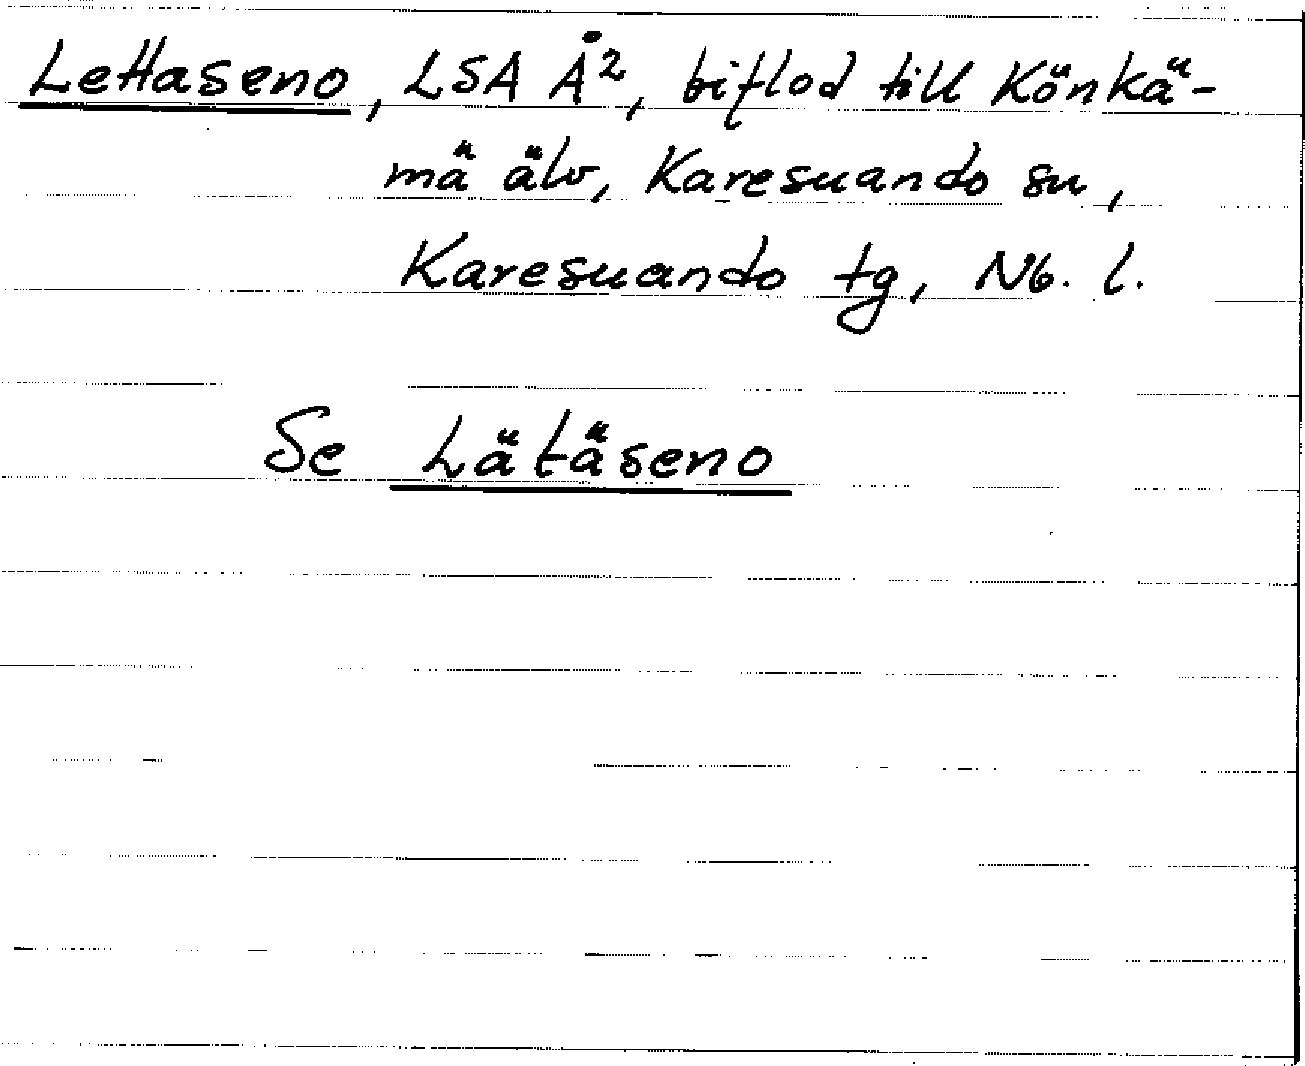 Lettaseno, LSA Å², biflod till Könkä-
mä älv, Karesuando sn,
Karesuando tg, Nb. l.
Se Lätäseno